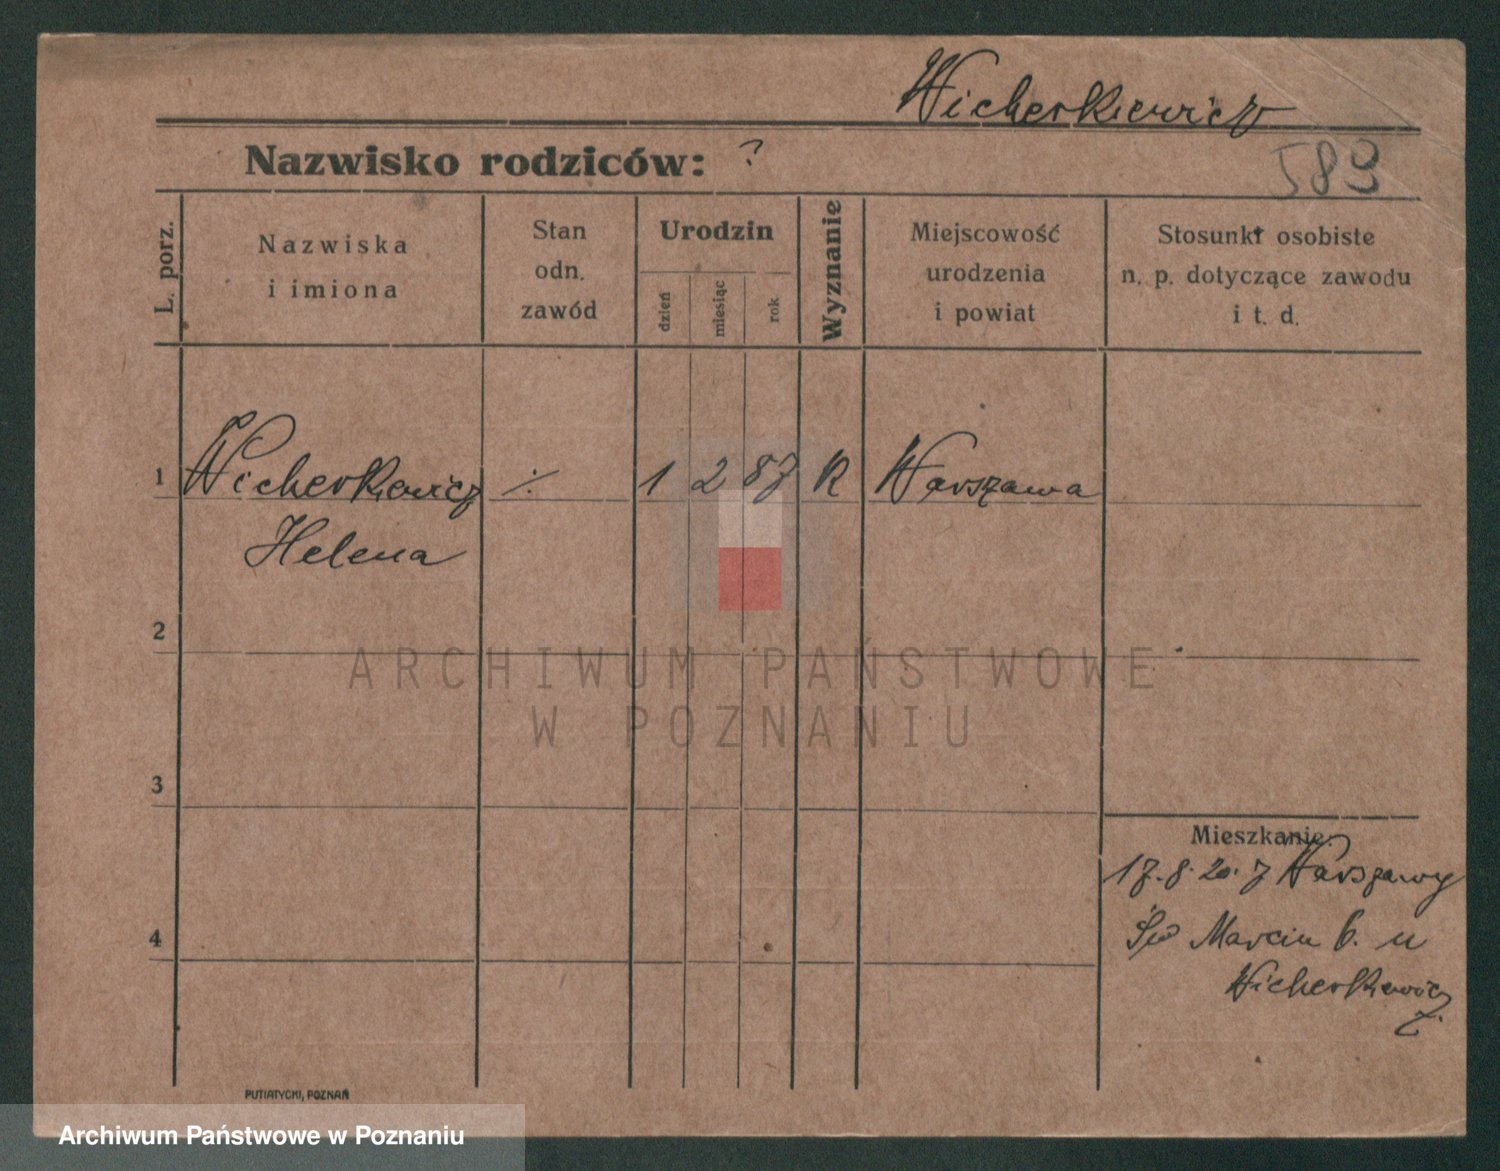 Wicherkiewicz
Nazwisko rodziców: ?
583
L. porz.
Nazwiska
i imiona
Stan
odn.
zawód
Urodzin
dzień
miesiąc
rok
Wyznanie
Miejscowość
urodzenia
i powiat
Stosunki osobiste
n. p. dotyczące zawodu
i t. d.
1 Wicherkiewicz ./. 1 2 87 R Warszawa
Helena
2
ARCHIWUM PAŃSTWOWE
W POZNANIU
3
Mieszkanie:
17.8.20. z Warszawy
Św Marcin 6. u
Wicherkiewicz
4
PUTIATYCKI, POZNAŃ
Archiwum Państwowe w Poznaniu